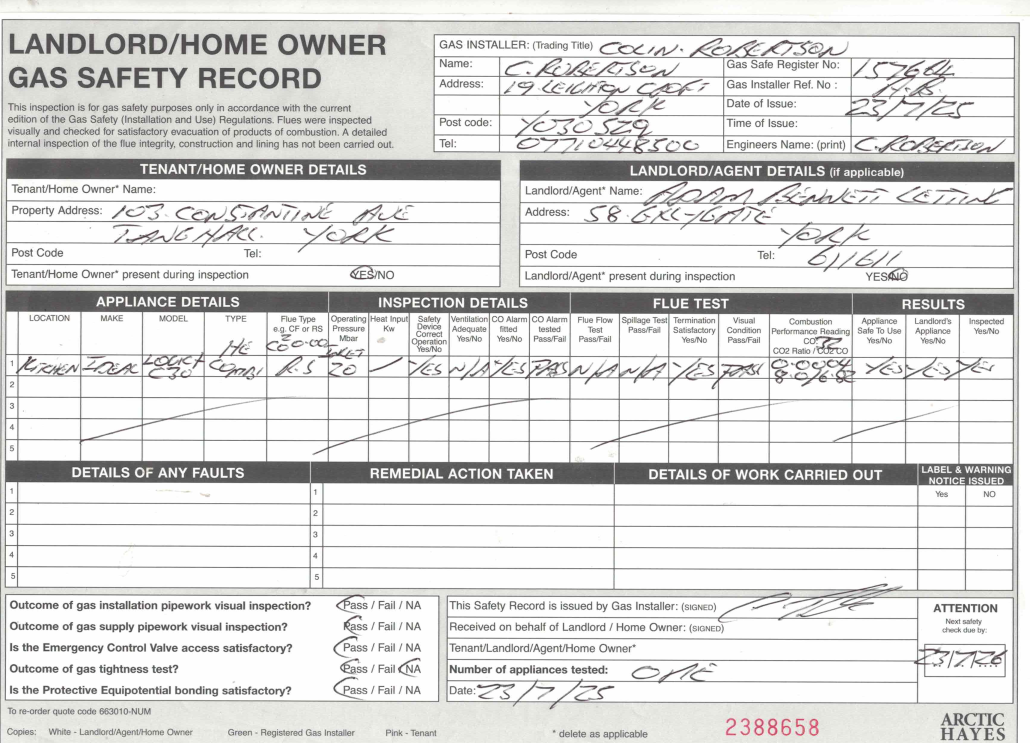 LANDLORD/HOME OWNER
GAS SAFETY RECORD
This inspection is for gas safety purposes only in accordance with the current
edition of the Gas Safety (Installation and Use) Regulations. Flues were inspected
visually and checked for satisfactory evacuation of products of combustion. A detailed
internal inspection of the flue integrity, construction and lining has not been carried out.
GAS INSTALLER: (Trading Title) COLIN. ROBERTSON
Name: C. ROBERTSON
Gas Safe Register No: 157664
Address: 19 LEIGHTON CROFT
Gas Installer Ref. No :
YORK
Date of Issue: 23/7/25
Post code: YO30 5ZQ
Time of Issue:
Tel: 07710448500
Engineers Name: (print) C. ROBERTSON
TENANT/HOME OWNER DETAILS
Tenant/Home Owner* Name:
Property Address: 103. CONSTANTINE AVE
TANG HALL. YORK
Post Code Tel:
Tenant/Home Owner* present during inspection YES/NO
LANDLORD/AGENT DETAILS (if applicable)
Landlord/Agent* Name: ADAM BENNETT LETTING
Address: 58. GILLYGATE
YORK
Post Code Tel: 611611
Landlord/Agent* present during inspection YES/NO
APPLIANCE DETAILS INSPECTION DETAILS FLUE TEST RESULTS
LOCATION
MAKE
MODEL
TYPE
Flue Type e.g. CF or RS
Operating Pressure Mbar
Heat Input Kw
Safety Device Correct Operation Yes/No
Ventilation Adequate Yes/No
CO Alarm fitted Yes/No
CO Alarm tested Pass/Fail
Flue Flow Test Pass/Fail
Spillage Test Pass/Fail
Termination Satisfactory Yes/No
Visual Condition Pass/Fail
Combustion Performance Reading CO CO2 Ratio / CO2 CO
Appliance Safe To Use Yes/No
Landlord's Appliance Yes/No
Inspected Yes/No
HE INLET
1 KITCHEN IDEAL LOGIC+ C30 COMBI R.S 20 / YES N/A YES PASS N/A N/A YES PASS 0.0004 YES YES YES
2
3
4
5
DETAILS OF ANY FAULTS REMEDIAL ACTION TAKEN DETAILS OF WORK CARRIED OUT LABEL & WARNING NOTICE ISSUED
Yes NO
1 1
2 2
3 3
4 4
5 5
Outcome of gas installation pipework visual inspection? Pass / Fail / NA
Outcome of gas supply pipework visual inspection? Pass / Fail / NA
Is the Emergency Control Valve access satisfactory? Pass / Fail / NA
Outcome of gas tightness test? Pass / Fail / NA
Is the Protective Equipotential bonding satisfactory? Pass / Fail / NA
This Safety Record is issued by Gas Installer: (SIGNED)
Received on behalf of Landlord / Home Owner: (SIGNED)
Tenant/Landlord/Agent/Home Owner*
Number of appliances tested: ONE
Date: 23/7/25
ATTENTION
Next safety
check due by:
23/7/26
To re-order quote code 663010-NUM
Copies: White - Landlord/Agent/Home Owner Green - Registered Gas Installer Pink - Tenant
* delete as applicable
2388658
ARCTIC
HAYES